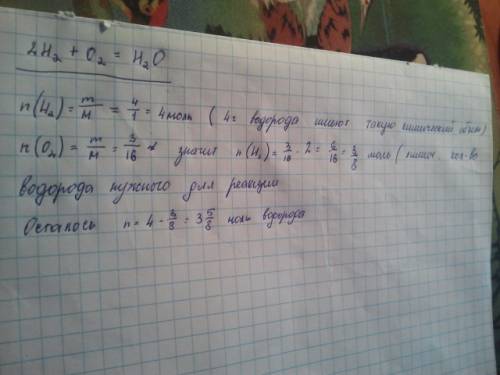 2H₂ + O₂ = H₂O
n(H₂) = m/M = 4/1 = 4 моль ( 4г водорода имеют такую химический объем)
n(O₂) = m/M = 3/16 значит n(H₂) = 3/16 · 2 = 6/16 = 3/8 моль ( кол-во
водорода нужного для реакции
Осталось n = 4 - 3/8 = 3 5/8 моль водорода